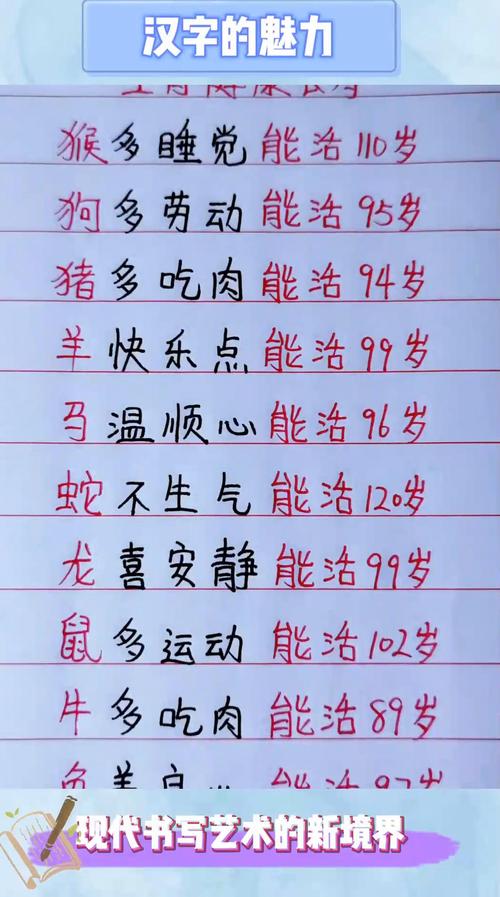 汉字的魅力
生肖健康长寿
猴多睡觉能活110岁
狗多劳动能活95岁
猪多吃肉能活94岁
羊快乐点能活99岁
马温顺心能活96岁
蛇不生气能活120岁
龙喜安静能活99岁
鼠多运动能活102岁
牛多吃肉能活89岁
能活97岁
现代书写艺术的新境界